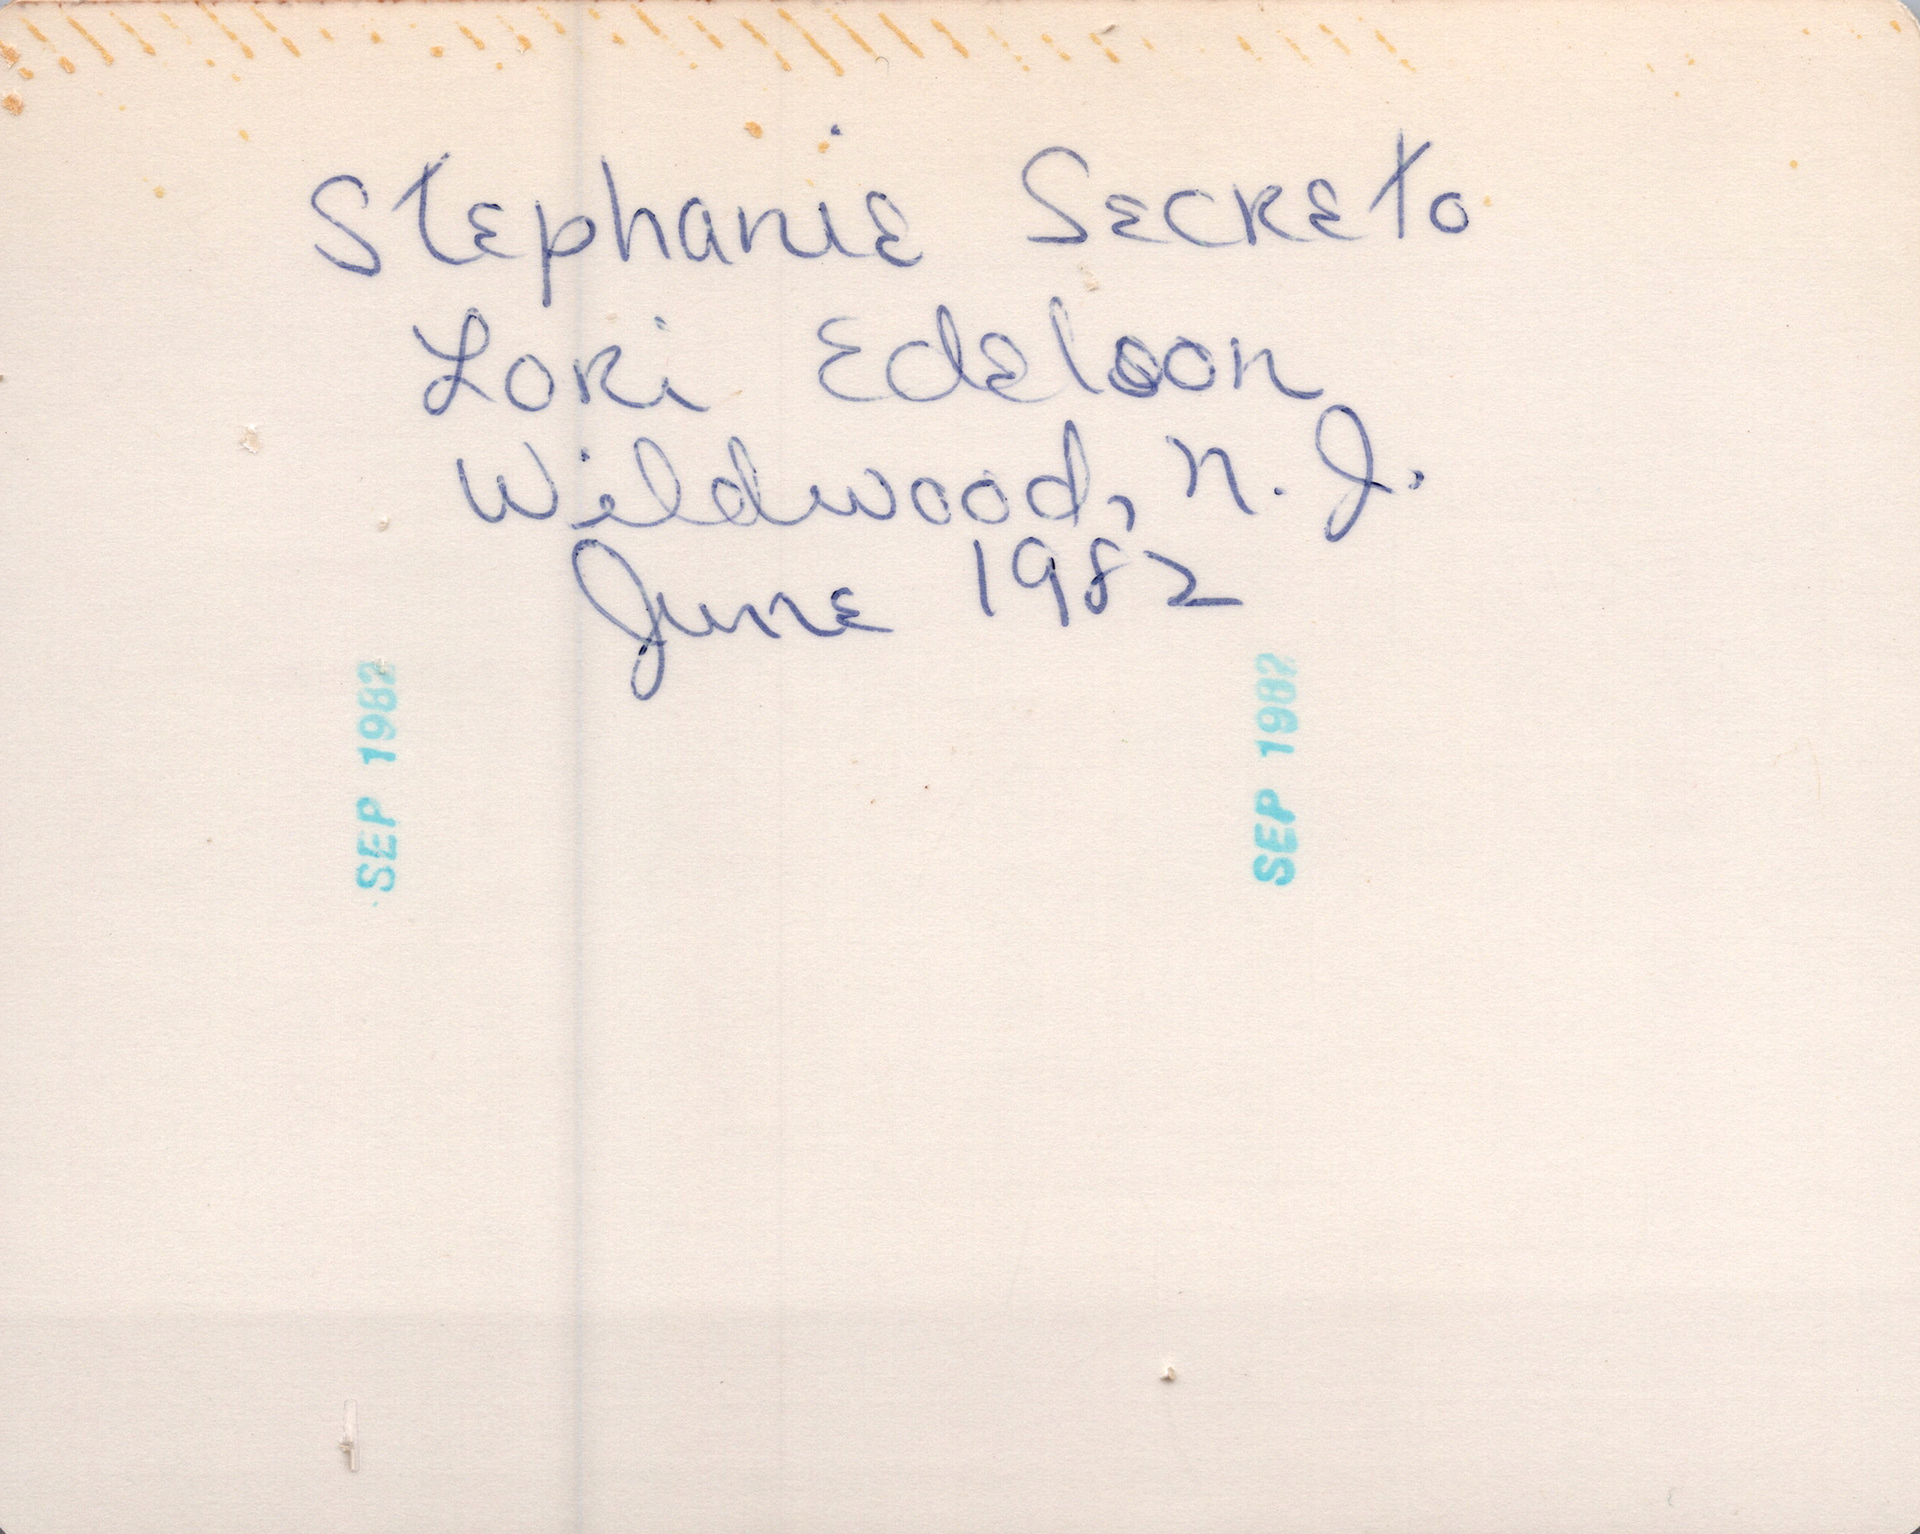 Stephanie Secreto
Lori Edelson
Wildwood, N.J.
June 1982
SEP 1982
SEP 1982